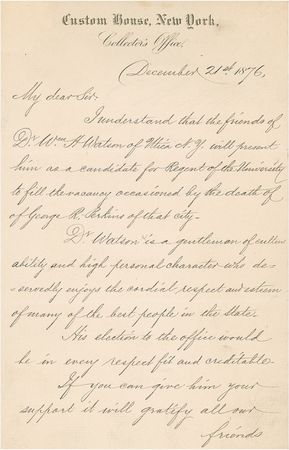 Custom House, New York,
Collector's Office,
December 21st 1876,
My dear Sir.
I understand that the friends of
Dr Wm H Watson of Utica N.Y. will present
him as a candidate for Regent of the University
to fill the vacancy occasioned by the death of
of George R. Perkins of that city-
Dr Watson is a gentleman of culture
ability and high personal character who de-
-servedly enjoys the cordial respect and esteem
of many of the best people in the State.
His election to the office would
be in every respect fit and creditable
If you can give him your
support it will gratify all our
friends